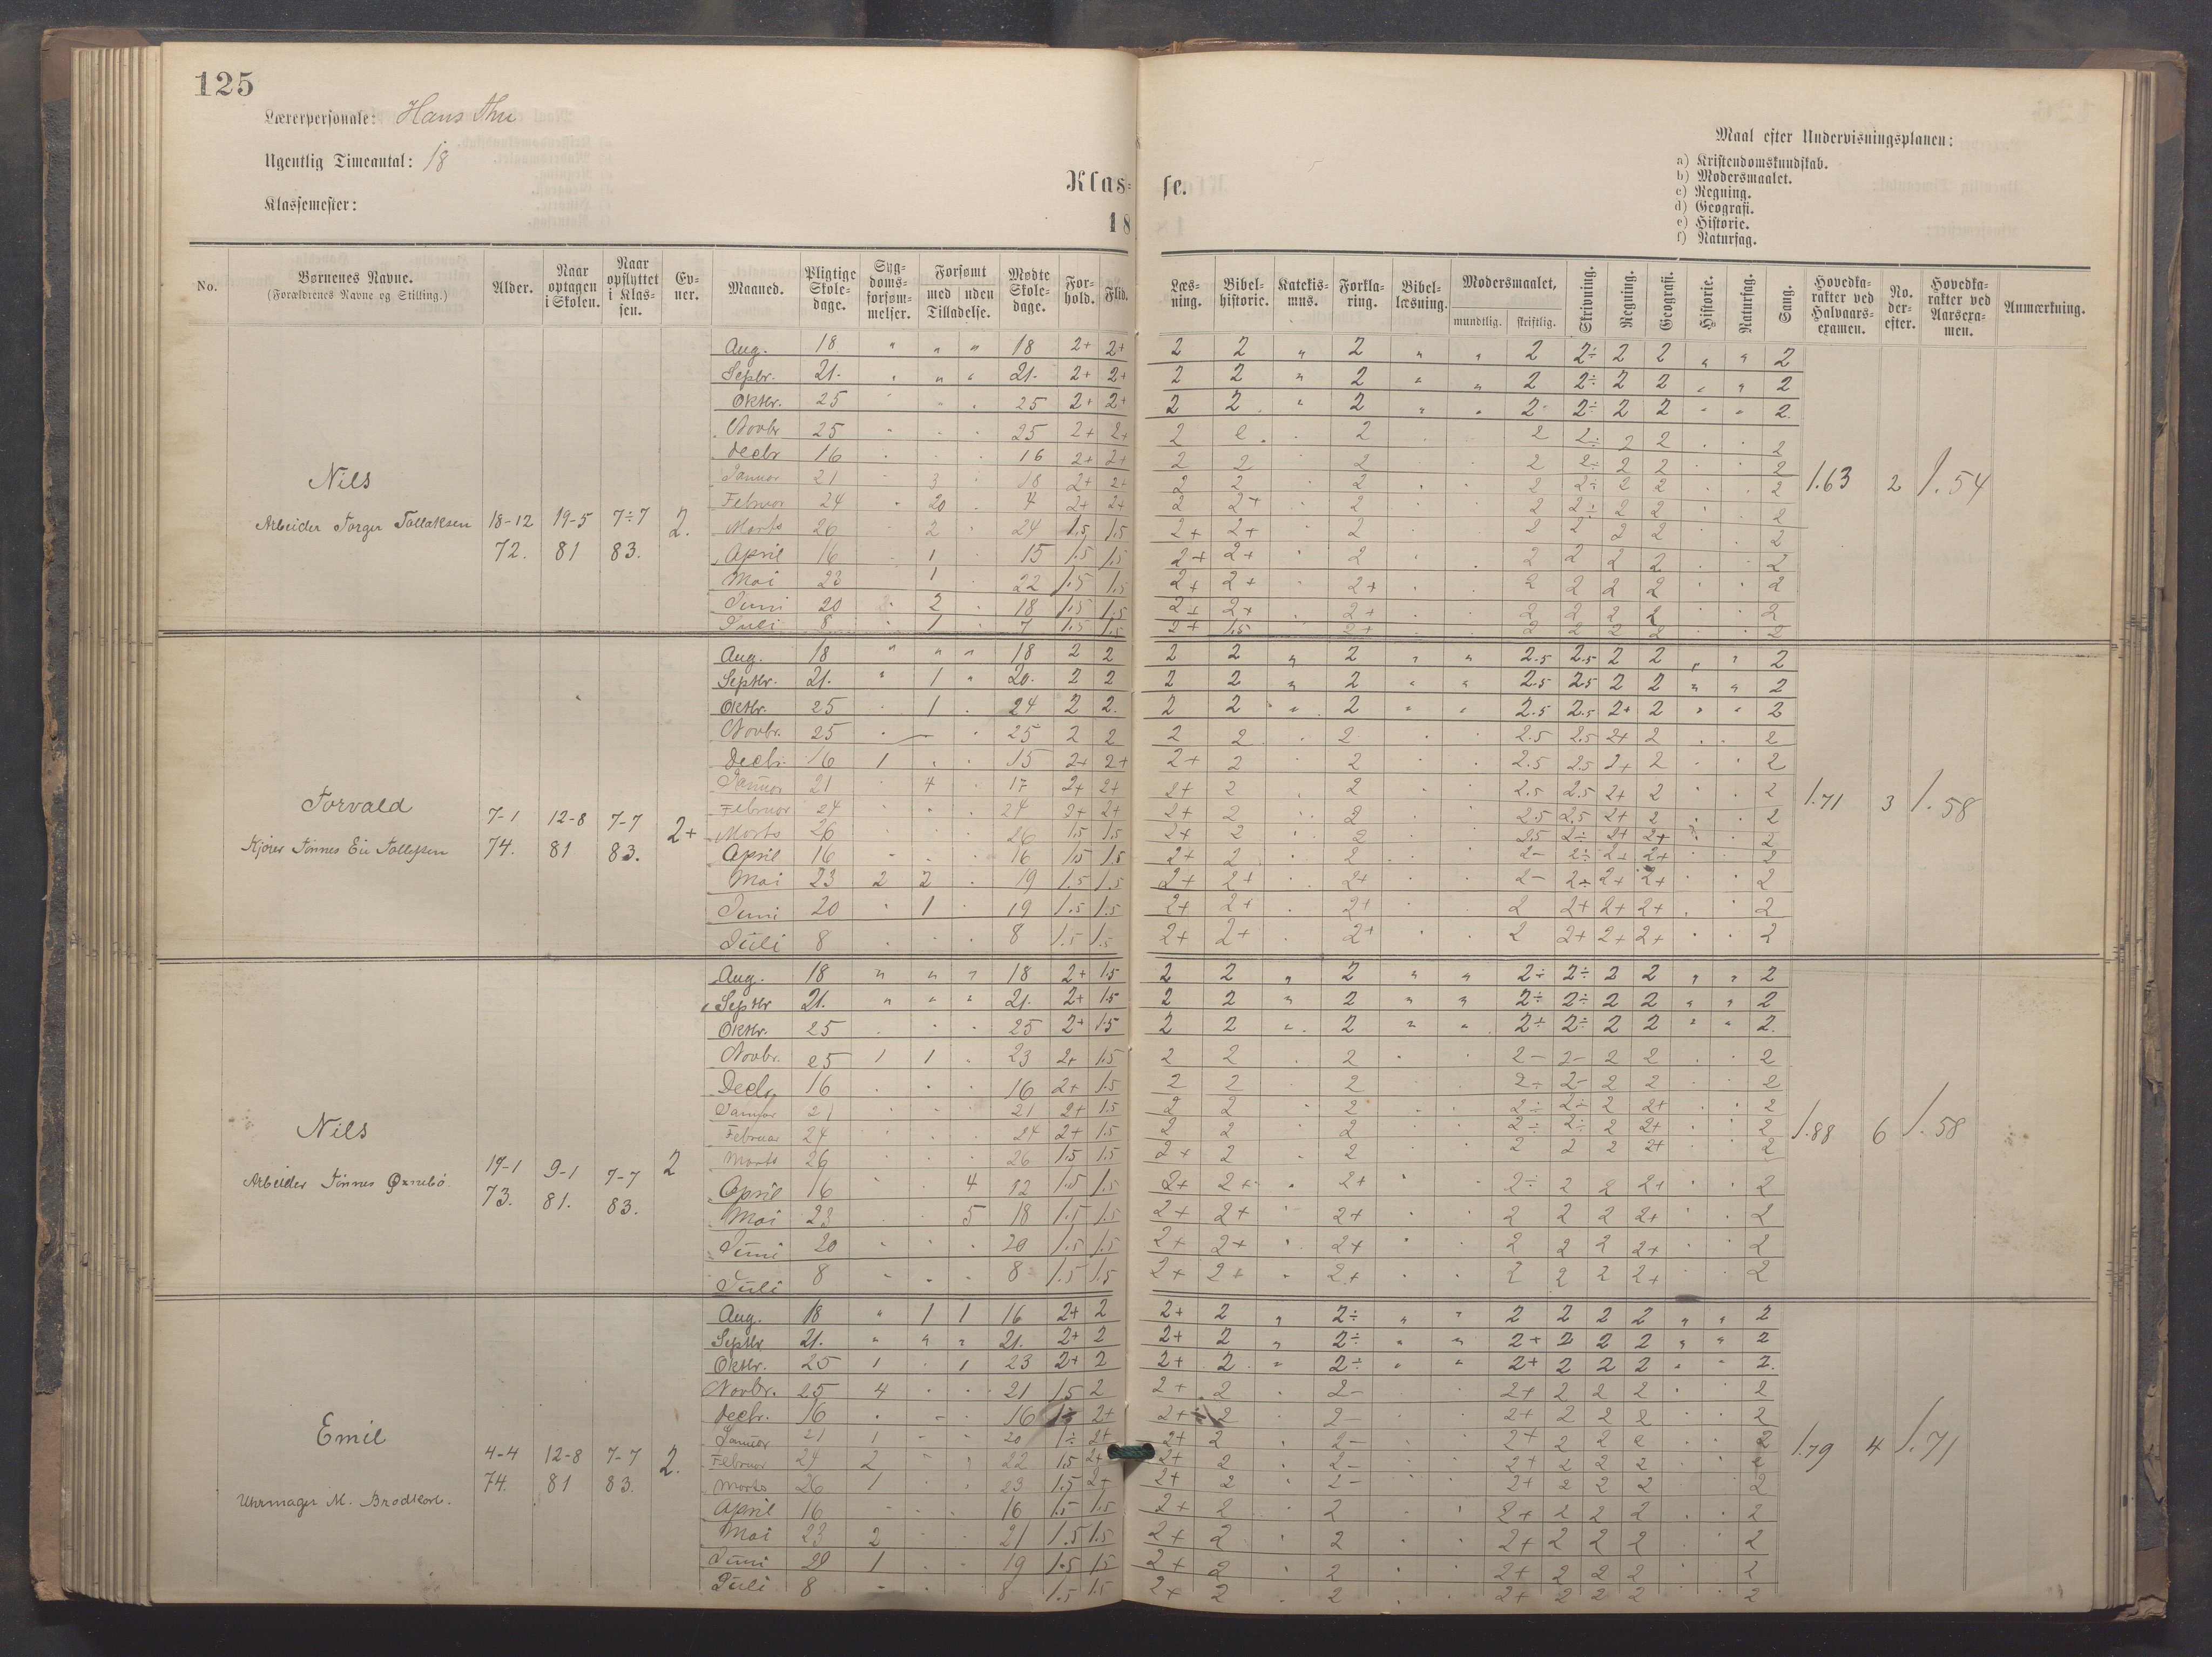 125
Lærerpersonale: Hans Thu
Ugentlig Timeantal: 18
Klassemester:
Klasse.
18
Maal efter Undervisningsplanen:
a) Kristendomskundskab.
b) Modersmaalet.
c) Regning.
d) Geografi.
e) Historie.
f) Naturfag.
No. Børnenes Navne. (Forældrenes Navne og Stilling.) Alder. Naar optagen i Skolen. Naar opflyttet i Klassen. Evner. Maaned. Pligtige Skoledage. Sygdomsforsømmelser. Forsømt med uden Tilladelse. Mødte Skoledage. Forhold. Flid. Læsning. Bibelhistorie. Katekismus. Forklaring. Bibellæsning. Modersmaalet, mundtlig. skriftlig. Skrivning. Regning. Geografi. Historie. Naturfag. Sang. Hovedkarakter ved Halvaarsexamen. No. derefter. Hovedkarakter ved Aarsexamen. Anmærkning.
Aug. 18 " " " 18 2+ 2+ 2 2 " 2 " " 2 2÷ 2 2 " " 2
Septbr. 21. " " " 21. 2+ 2+ 2 2 " 2 " " 2 2÷ 2 2 " " 2
Oktbr. 25 25 2+ 2+ 2 2 " 2 " " 2 2÷ 2 2 " " 2.
Novbr 25 25 2+ 2+ 2 2 2 2 2÷ 2 2 2
Decbr 16 16 2+ 2+ 2 2 2 2 2÷ 2 2 2
Januar 21 3 18 2+ 2+ 2 2 2 2 2÷ 2 2 2
Februar 24 20 4 2+ 2+ 2 2+ 2 2 2÷ 2 2 2
Marts 26 2 24 1.5 1.5 2+ 2+ 2 2 2 2 2 2
April 16 1 15 1.5 1.5 2+ 2+ 2 2 2 2 2 2
Mai 23 1 22 1.5 1.5 2+ 2+ 2+ 2 2 2 2 2
Juni 20 2 18 1.5 1.5 2+ 2+ 2+ 2 2 2 2 2
Juli 8 1 7 1.5 1.5 2+ 1.5 2+ 2 2 2 2 2
Nils
Arbeider Torger Tollaksen 18-12 72. 19-5 81 7÷7 83. 2. 1.63 2 1.54
Aug. 18 " " " 18 2 2 2 2 " 2 " " 2.5 2.5 2 2 " " 2
Septbr. 21. " 1 " 20. 2 2 2 2 " 2 " " 2.5 2.5 2 2 " " 2
Oktbr. 25 1 24 2 2. 2 2 " 2 " " 2.5 2.5 2+ 2 " " 2
Novbr. 25 25 2 2 2 2 2 2.5 2.5 2+ 2 2
Decbr. 16 1 15 2+ 2+ 2+ 2 2 2.5 2.5 2+ 2 2
Januar 21 4 17 2+ 2+ 2+ 2 2 2.5 2.5 2+ 2 2
Februar 24 24 2+ 2+ 2+ 2 2 2.5 2.5 2+ 2 2
Marts 26 26 1.5 1.5 2+ 2 2 2.5 2÷ 2+ 2+ 2
April 16 16 1.5 1.5 2+ 2 2 2- 2÷ 2+ 2+ 2
Mai 23 2 2 19 1.5 1.5 2+ 2+ 2+ 2- 2÷ 2+ 2+ 2
Juni 20 1 19 1.5 1.5 2+ 2+ 2+ 2 2+ 2+ 2+ 2
Juli 8 8 1.5 1.5 2+ 2+ 2+ 2 2+ 2+ 2+ 2
Torvald
Tønnes 7-1 74. 12-8 81 7-7 83. 2+ 1.71 3 1.58
Aug. 18 " " " 18 2+ 1.5 2 2 " 2 " " 2÷ 2÷ 2 2 " " 2
Septbr 21. " " " 21. 2+ 1.5 2 2 " 2 " " 2÷ 2÷ 2 2 " " 2
Oktbr. 25 25 2+ 1.5 2 2 " 2 " " 2÷ 2÷ 2 2 " " 2.
Novbr. 25 1 1 23 2+ 1.5 2 2 2 2- 2- 2 2 2
Decbr. 16 16 2+ 1.5 2 2 2 2÷ 2- 2 2 2
Januar 21 21 2+ 1.5 2 2 2 2÷ 2÷ 2 2+ 2
Februar 24 24 2+ 1.5 2 2 2 2÷ 2÷ 2 2+ 2
Marts 26 26 1.5 1.5 2+ 2 2 2 2 2 2+ 2
April 16 4 12 1.5 1.5 2+ 2+ 2+ 2÷ 2 2 2+ 2
Mai 23 5 18 1.5 1.5 2+ 2+ 2+ 2 2 2 2+ 2
Juni 20 20 1.5 1.5 2+ 2+ 2+ 2 2 2 2+ 2
Juli 8 8 1.5 1.5 2+ 2+ 2+ 2 2 2 2+ 2
Nils
Arbeider Tønnes Øxnebø 19-1 73. 9-1 81. 7-7 83. 2 1.88 6 1.58
Aug. 18 " 1 1 16 2+ 2 2+ 2 " 2÷ " " 2 2 2 2 " " 2
Septbr 21. " " " 21. 2+ 2 2+ 2 " 2÷ " " 2+ 2 2 2 " " 2
Oktbr. 25 1 1 23 2+ 2 2+ 2 " 2÷ " " 2+ 2 2 2 " " 2.
Novbr. 25 4 21 1.5 2 2+ 2 2- 2+ 2 2 2 2
Decbr. 16 16 2+ 2+ 2 2- 2+ 2 2 2 2
Januar 21 1 20 1÷ 2+ 2+ 2 2- 2+ 2 2 2 2
Februar 24 2 22 1.5 2+ 2+ 2 2- 2+ 2 2 2 2
Marts 26 1 23 1.5 2+ 2+ 2 2- 2+ 2 2 2 2
April 16 16 1.5 1.5 2+ 2 2 2+ 2 2 2 2
Mai 23 2 21 1.5 1.5 2+ 2 2 2+ 2 2 2 2
Juni 20 1 19 1.5 1.5 2+ 2 2 2+ 2 2 2 2
Juli 8 8 1.5 1.5 2+ 2 2 2+ 2 2 2 2
Emil
Uhrmager M. Brodkorb. 4-4 74. 12-8 81 7-7 83. 2. 1.79 4 1.71